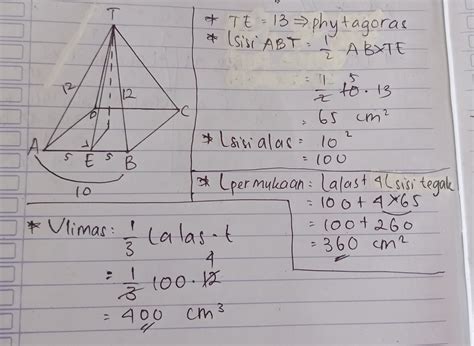 T
12
12
D
C
A
5
E
5
B
10
* TE = 13 ⇒ phytagoras
* Lsisi ABT = 1/2 AB×TE
= 1/2 10 5 · 13
= 65 cm²
* Lsisi alas = 10²
= 100
* Lpermukaan: Lalas + 4 Lsisi tegak
= 100 + 4 × 65
= 100 + 260
= 360 cm²
* Vlimas: 1/3 Lalas · t
= 1/3 100 · 12 4
= 400 cm³